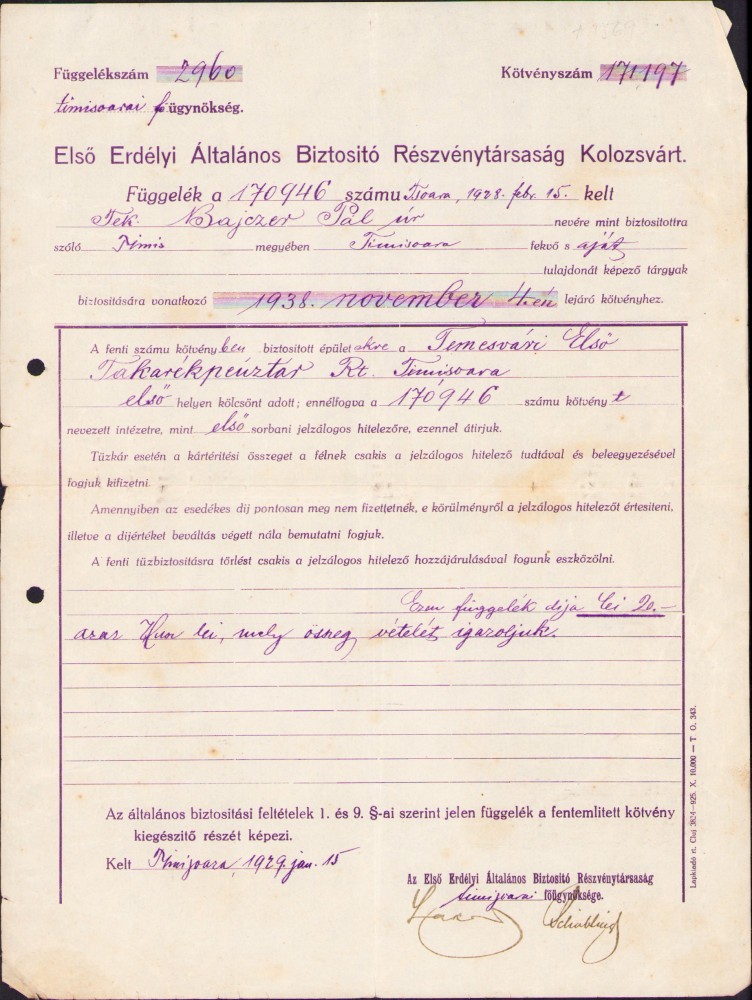 Függelékszám 2960
Kötvényszám 171197
timisoarai főügynökség.
Első Erdélyi Általános Biztositó Részvénytársaság Kolozsvárt.
Függelék a 170946 számu Tsoara, 1928. febr. 15. kelt
Tek. Bajczer Pál úr nevére mint biztositottra
szóló Timis megyében Timisoara fekvő s saját
tulajdonát képező tárgyak
biztositására vonatkozó 1938. november 4.én lejáró kötvényhez.
A fenti számu kötvényben biztositott épületekre a Temesvári Első
Takarékpénztár Rt. Timisoara
első helyen kölcsönt adott; ennélfogva a 170946 számu kötvényt
nevezett intézetre, mint első sorbani jelzálogos hitelezőre, ezennel átirjuk.
Tüzkár esetén a kártéritési összeget a félnek csakis a jelzálogos hitelező tudtával és beleegyezésével
fogjuk kifizetni.
Amennyiben az esedékes dij pontosan meg nem fizettetnék, e körülményről a jelzálogos hitelezőt értesiteni,
illetve a dijértéket beváltás végett nála bemutatni fogjuk.
A fenti tüzbiztositásra törlést csakis a jelzálogos hitelező hozzájárulásával fogunk eszközölni.
Ezen függelék dija Lei 20.—
azaz Husz lei, mely összeg vételét igazoljuk.
Az általános biztositási feltételek 1. és 9. §-ai szerint jelen függelék a fentemlitett kötvény
kiegészitő részét képezi.
Kelt Timisoara, 1929. jan. 15
Az Első Erdélyi Általános Biztositó Részvénytársaság
timisoarai főügynöksége.
Lapkiadó rt. Cluj 3824—925. X. 10.000 — T O. 343.